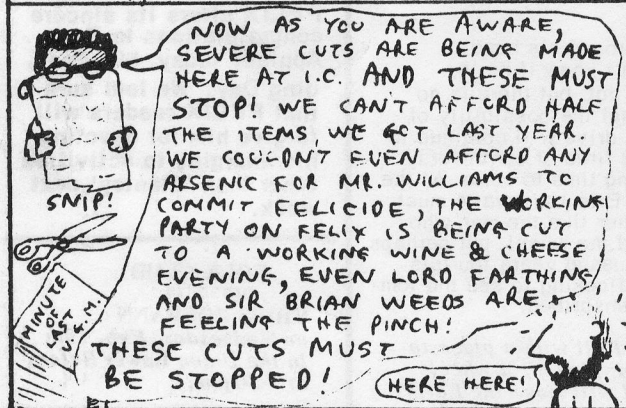 NOW AS YOU ARE AWARE,
SEVERE CUTS ARE BEING MADE
HERE AT I.C. AND THESE MUST
STOP! WE CANT AFFORD HALF
THE ITEMS, WE GOT LAST YEAR.
WE COULDNT EVEN AFFORD ANY
ARSENIC FOR MR. WILLIAMS TO
COMMIT FELICIDE, THE WORKING
PARTY ON FELIX IS BEING CUT
TO A WORKING WINE & CHEESE
EVENING, EVEN LORD FARTHING
AND SIR BRIAN WEEDS ARE
FEELING THE PINCH!
THESE CUTS MUST
BE STOPPED!
SNIP!
MINUTE
OF
LAST
U.G.M.
HERE HERE!